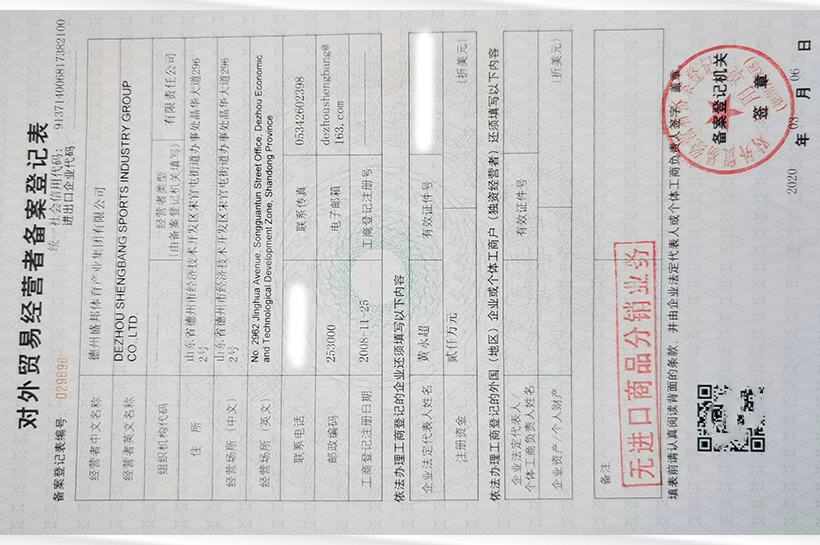 对外贸易经营者备案登记表
统一社会信用代码：
备案登记表编号： 029696 进出口企业代码 913714006817382100
经营者中文名称 德州盛邦体育产业集团有限公司
经营者英文名称 DEZHOU SHENGBANG SPORTS INDUSTRY GROUP
CO.,LTD.
组织机构代码 ———— 经营者类型
（由备案登记机关填写） 有限责任公司
住 所 山东省德州市经济技术开发区宋官屯街道办事处晶华大道296
2号
经营场所（中文） 山东省德州市经济技术开发区宋官屯街道办事处晶华大道296
2号
经营场所（英文） No. 2962 Jinghua Avenue, Songguantun Street Office, Dezhou Economic
and Technological Development Zone, Shandong Province
联系电话 联系传真 05342602398
邮政编码 253000 电子邮箱 dezhoushengbang@
163.com
工商登记注册日期 2008-11-25 工商登记注册号 ————
依法办理工商登记的企业还须填写以下内容
企业法定代表人姓名 黄永超 有效证件号
注册资金 贰仟万元 （折美元）
依法办理工商登记的外国（地区）企业或个体工商户（独资经营者）还须填写以下内容
企业法定代表人/
个体工商负责人姓名 有效证件号
企业资产/个人财产 （折美元）
备注
无进口商品分销业务
填表前请认真阅读背面的条款，并由企业法定代表人或个体工商负责人签字、盖章。
备案登记机关
签 章
2020 年 03 月 06 日